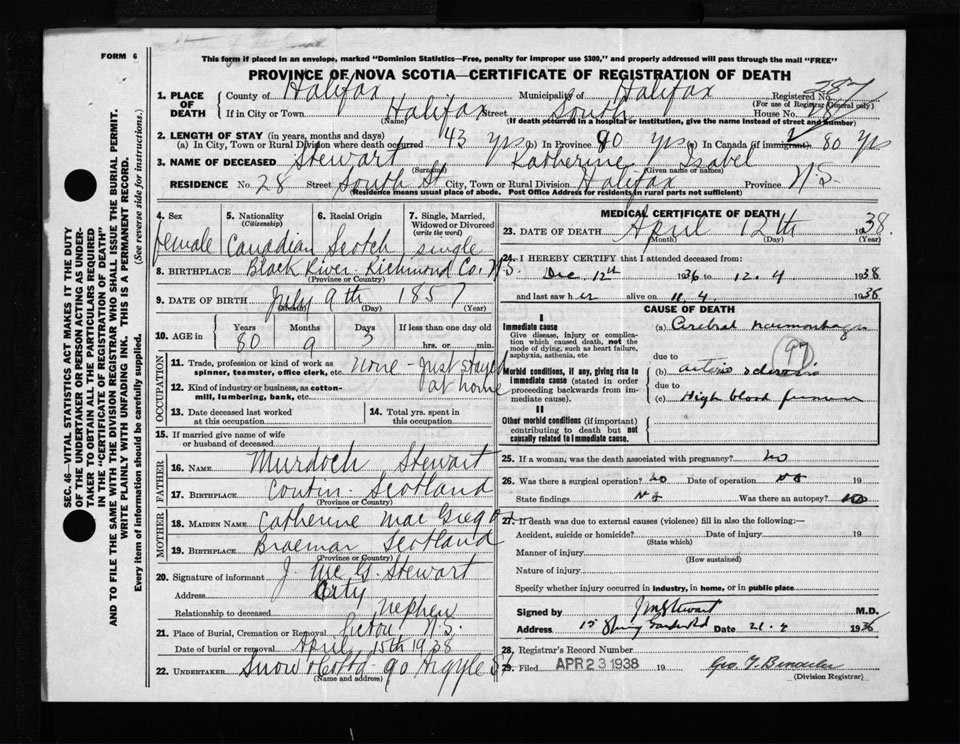 FORM 6
This form if placed in an envelope, marked "Dominion Statistics—Free, penalty for improper use $300," and properly addressed will pass through the mail "FREE"
PROVINCE OF NOVA SCOTIA—CERTIFICATE OF REGISTRATION OF DEATH
SEC. 46—VITAL STATISTICS ACT MAKES IT THE DUTY
OF THE UNDERTAKER OR PERSON ACTING AS UNDER-
TAKER TO OBTAIN ALL THE PARTICULARS REQUIRED
IN THE "CERTIFICATE OF REGISTRATION OF DEATH"
AND TO FILE THE SAME WITH THE DIVISION REGISTRAR WHO SHALL ISSUE THE BURIAL PERMIT.
WRITE PLAINLY WITH UNFADING INK. THIS IS A PERMANENT RECORD.
Every item of information should be carefully supplied. (See reverse side for instructions.)
1. PLACE OF DEATH County of Halifax Municipality of Halifax Registered No.
(For use of Registrar General only)
If in City or Town Halifax Street South House No. 28
(Name) (If death occurred in a hospital or institution, give the name instead of street and number)
2. LENGTH OF STAY (in years, months and days)
(a) In City, Town or Rural Division where death occurred 43 yrs (b) In Province 80 yrs (c) In Canada (if immigrant) 80 yrs
3. NAME OF DECEASED Stewart Katherine Isabel
(Surname) (Given name or names)
RESIDENCE No. 28 Street South St City, Town or Rural Division Halifax Province N.S.
(Residence means usual place of abode. Post Office Address for residents in rural parts not sufficient)
4. Sex female
5. Nationality (Citizenship) Canadian
6. Racial Origin Scotch
7. Single, Married, Widowed or Divorced (write the word) single
8. BIRTHPLACE Black River Richmond Co. N.S.
(Province or Country)
9. DATE OF BIRTH July 9th 1857
(Month) (Day) (Year)
10. AGE in Years 80 Months 9 Days 3 If less than one day old hrs. or min.
OCCUPATION
11. Trade, profession or kind of work as spinner, teamster, office clerk, etc. None - Just stayed at home
12. Kind of industry or business, as cotton-mill, lumbering, bank, etc.
13. Date deceased last worked at this occupation
14. Total yrs. spent in this occupation
15. If married give name of wife or husband of deceased
FATHER
16. NAME Murdoch Stewart
17. BIRTHPLACE Contin Scotland
(Province or Country)
MOTHER
18. MAIDEN NAME Catherine Mac Gregor
19. BIRTHPLACE Braemar Scotland
(Province or Country)
20. Signature of informant J. Mc G. Stewart
Address City
Relationship to deceased Nephew
21. Place of Burial, Cremation or Removal Pictou N.S.
Date of burial or removal April 15th 1938
22. UNDERTAKER Snow & Co Ltd 90 Argyle St
(Name and address)
MEDICAL CERTIFICATE OF DEATH
23. DATE OF DEATH April 12th 1938.
(Month) (Day) (Year)
24. I HEREBY CERTIFY that I attended deceased from:
Dec. 12th 1936 to 12.4 1938
and last saw her alive on 11.4. 1938
CAUSE OF DEATH
I
Immediate cause
Give disease, injury or complication which caused death, not the mode of dying, such as heart failure, asphyxia, asthenia, etc
(a) Cerebral haemorrhage
97
due to
Morbid conditions, if any, giving rise to immediate cause (stated in order proceeding backwards from immediate cause).
(b) arterio sclerosis
due to
(c) High blood pressure
II
Other morbid conditions (if important) contributing to death but not causally related to immediate cause.
25. If a woman, was the death associated with pregnancy? no
26. Was there a surgical operation? no Date of operation 19
State findings Was there an autopsy? no
27. If death was due to external causes (violence) fill in also the following:—
Accident, suicide or homicide? Date of injury 19
(State which)
Manner of injury
(How sustained)
Nature of injury
Specify whether injury occurred in industry, in home, or in public place
Signed by M.D.
Address Date 21.4 1938
28. Registrar's Record Number
29. Filed APR 23 1938 19
(Division Registrar)